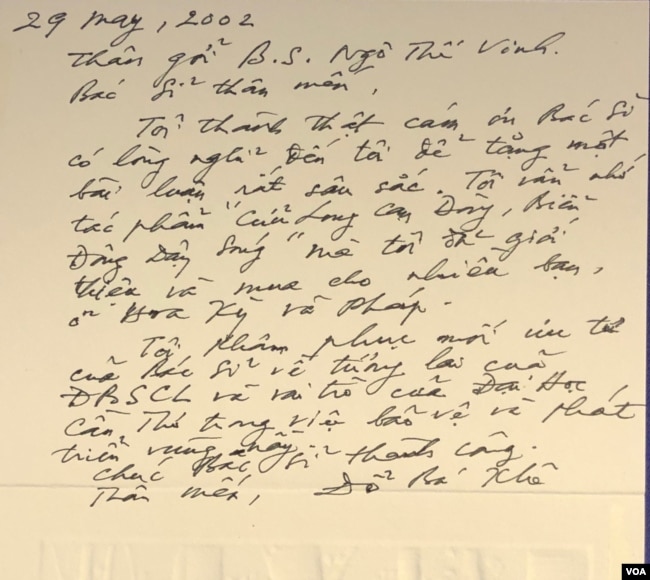 29 May, 2002
Thân gởi B.S. Ngô Thế Vinh.
Bác Sĩ thân mến,
Tôi thành thật cám ơn Bác Sĩ
có lòng nghĩ đến tôi để tặng một
bài luận rất sâu sắc. Tôi vẫn nhớ
tác phẩm "Cửu Long Cạn Dòng, Biển
Đông Dậy Sóng" mà tôi đã giới
thiệu và mua cho nhiều bạn,
ở Hoa Kỳ và Pháp.
Tôi khâm phục mối ưu tư
của Bác Sĩ về tương lai của
ĐBSCL và vai trò của Đại Học
Cần Thơ trong việc bảo vệ và phát
triển vùng nầy.
Chúc Bác Sĩ thành công.
Thân mến, Đỗ Bá Khê
VOA